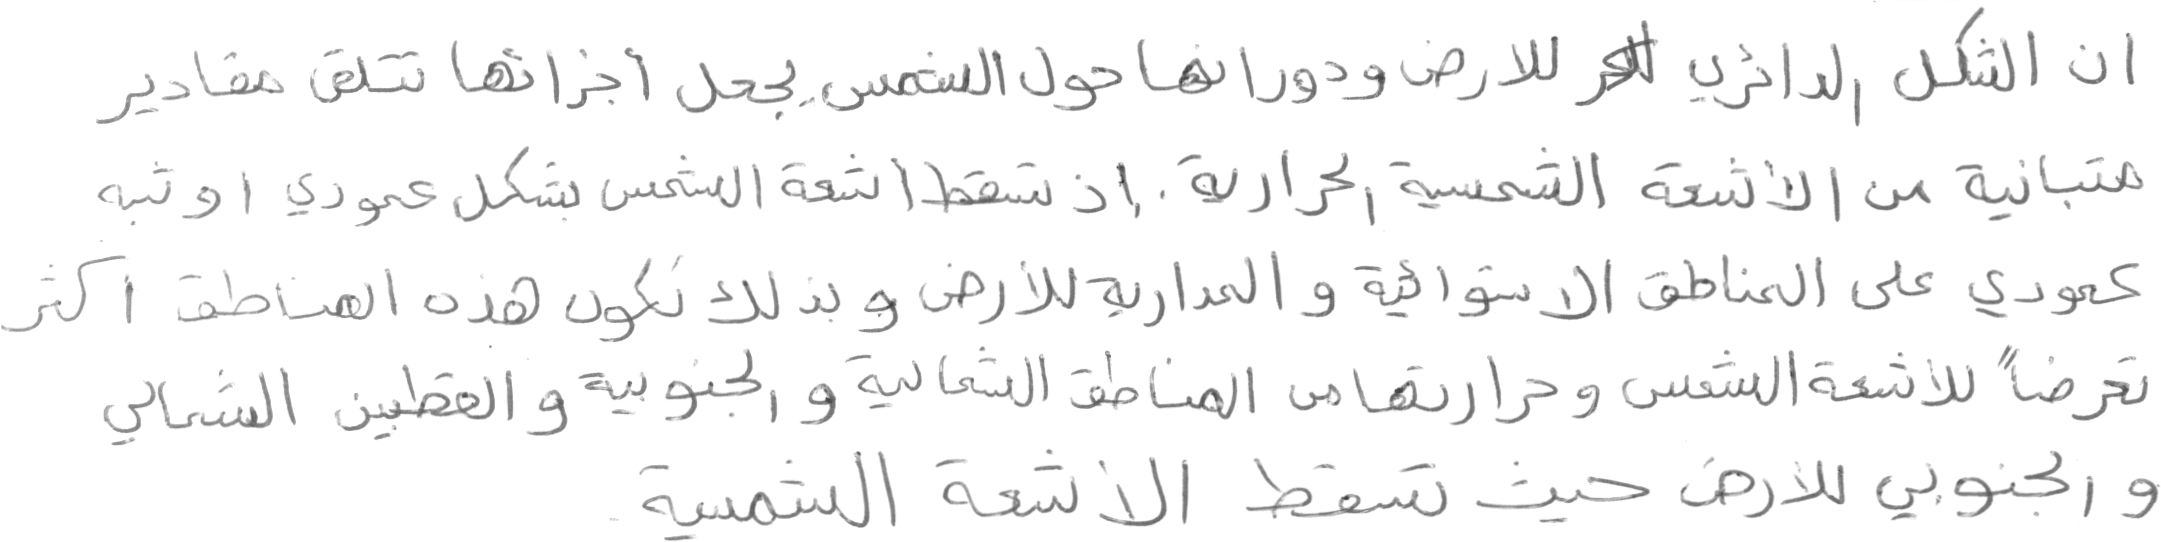 ان الشكل الدائري للارض ودورانها حول الشمس يجعل أجزائها تتلقى مقادير
متباينة من الأشعة الشمسية الحرارية. إذ تسقط أشعة الشمس بشكل عمودي او شبه
عمودي على المناطق الاستوائية والمدارية للأرض وبذلك تكون هذه المناطق أكثر
تعرضاً للأشعة الشمس وحرارتها من المناطق الشمالية والجنوبية والقطبين الشمالي
والجنوبي للأرض حيث تسقط الأشعة الشمسية